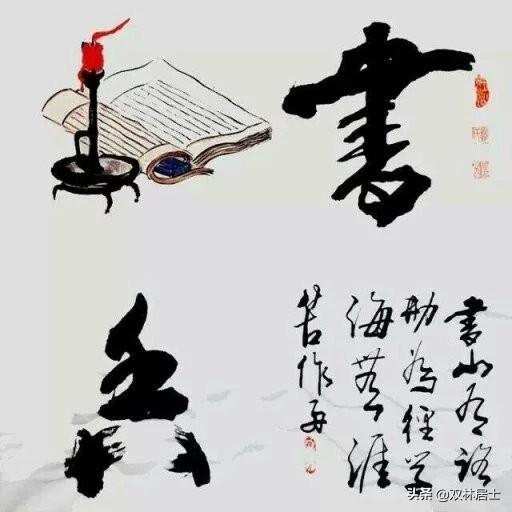 書
香
書山有路
勤為徑學
海無涯
苦作舟
头条 @双林居士